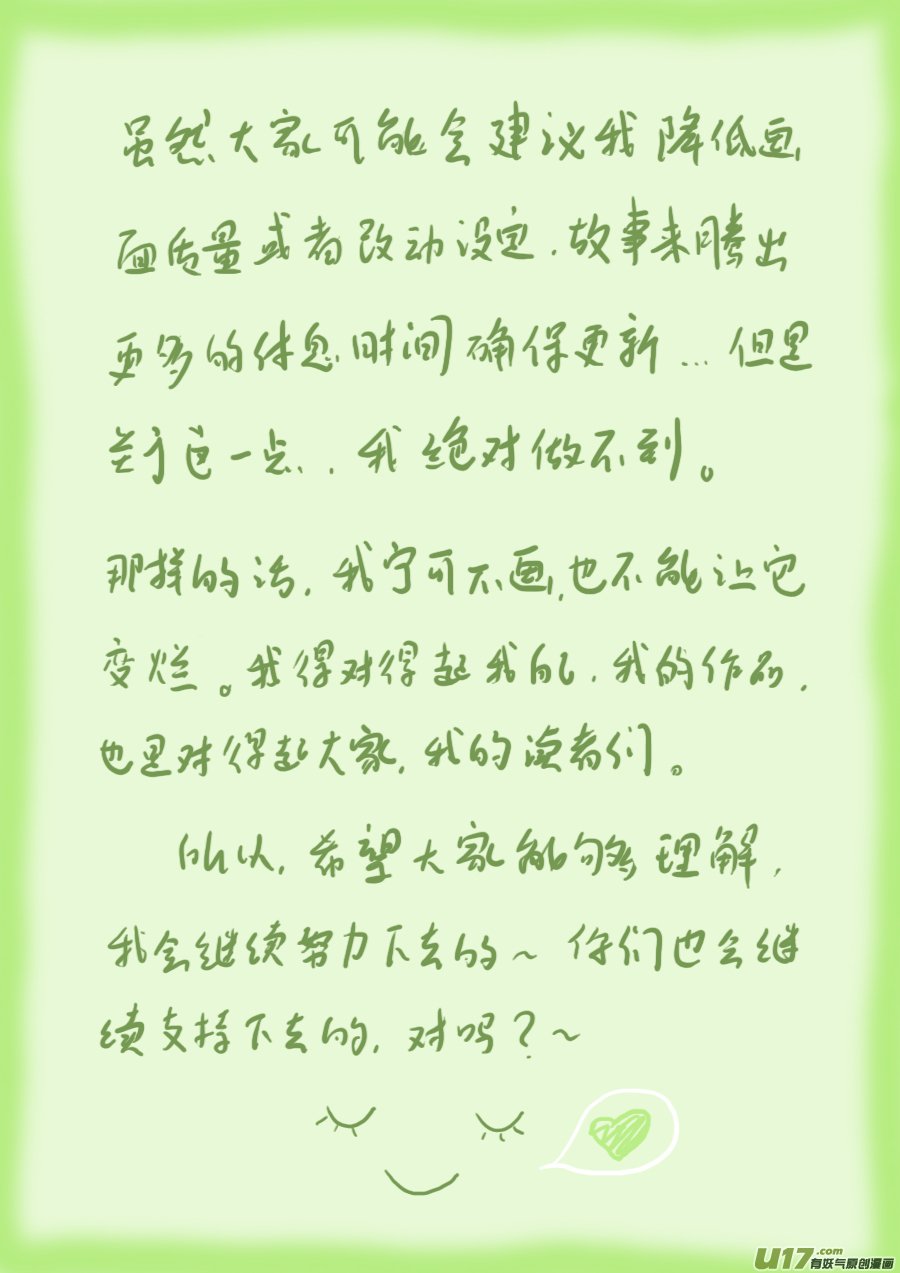 虽然大家可能会建议我降低画
面质量或者改动设定、故事来腾出
更多的休息时间确保更新…但是
关于这一点，我绝对做不到。
那样的话，我宁可不画，也不能让它
变烂。我得对得起我自己，我的作品，
也是对得起大家，我的读者们。
所以，希望大家能够理解，
我会继续努力下去的~你们也会继
续支持下去的，对吗？~
U17.com
有妖气原创漫画